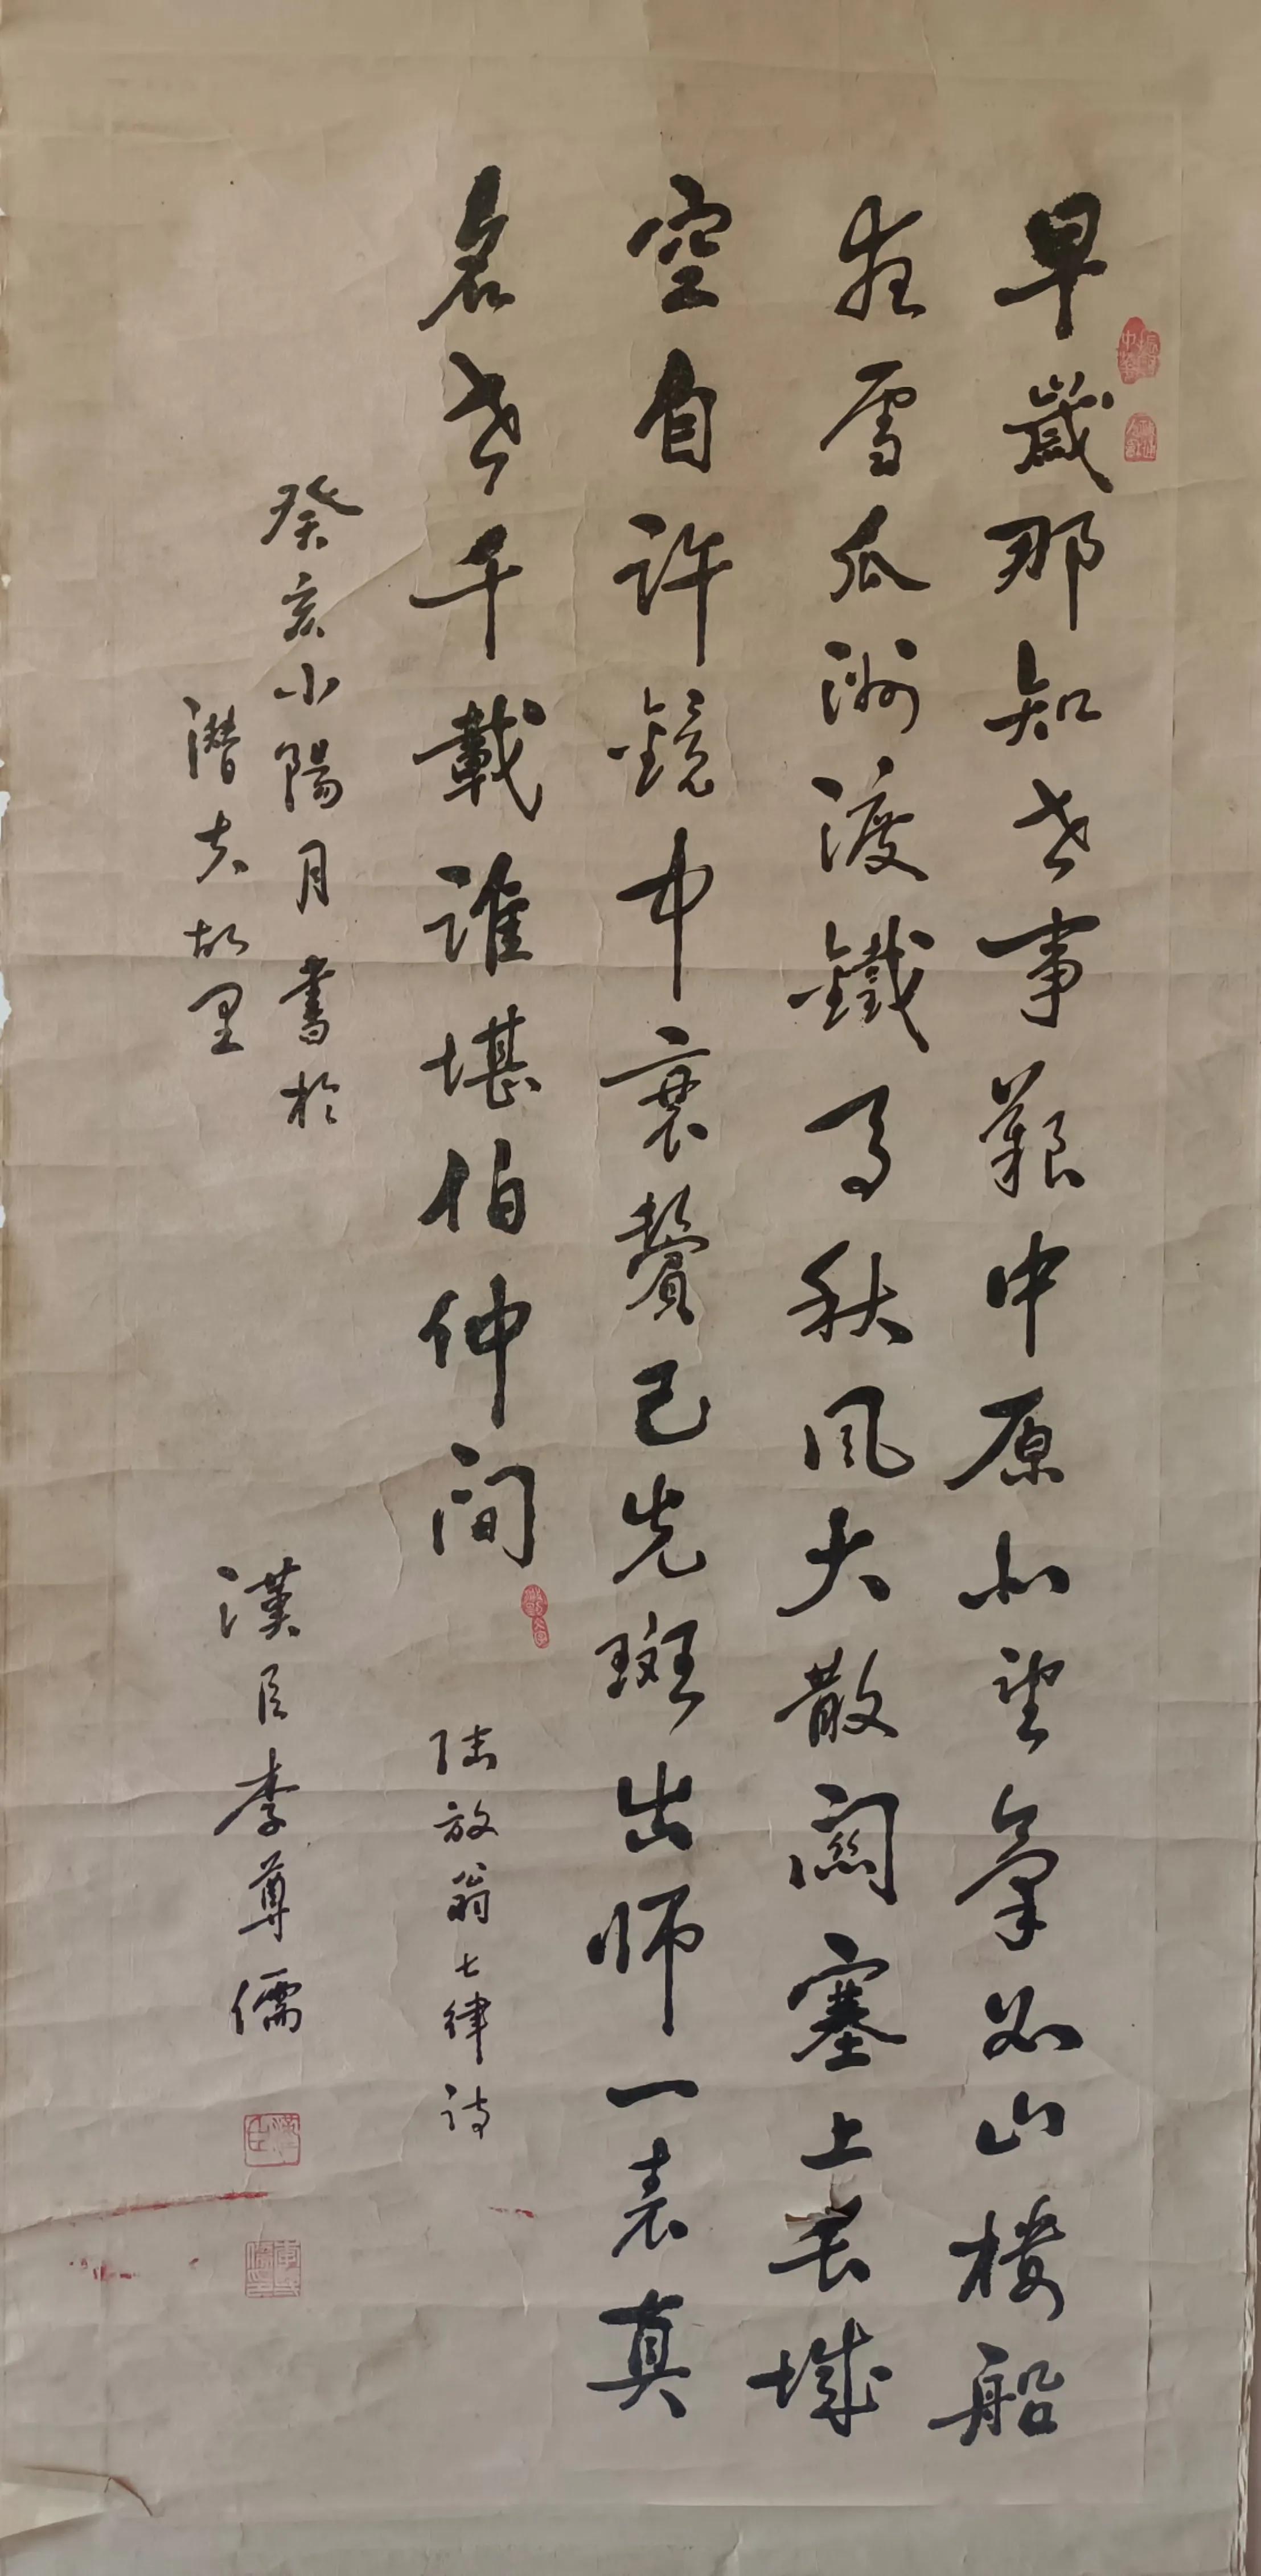 早歲那知世事艱中原北望氣如山樓船
夜雪瓜洲渡鐵馬秋風大散關塞上長城
空自許鏡中衰鬢已先斑出師一表真
名世千載誰堪伯仲間
陆放翁七律诗
癸亥小陽月書於
潛夫故里
漢臣李尊儒